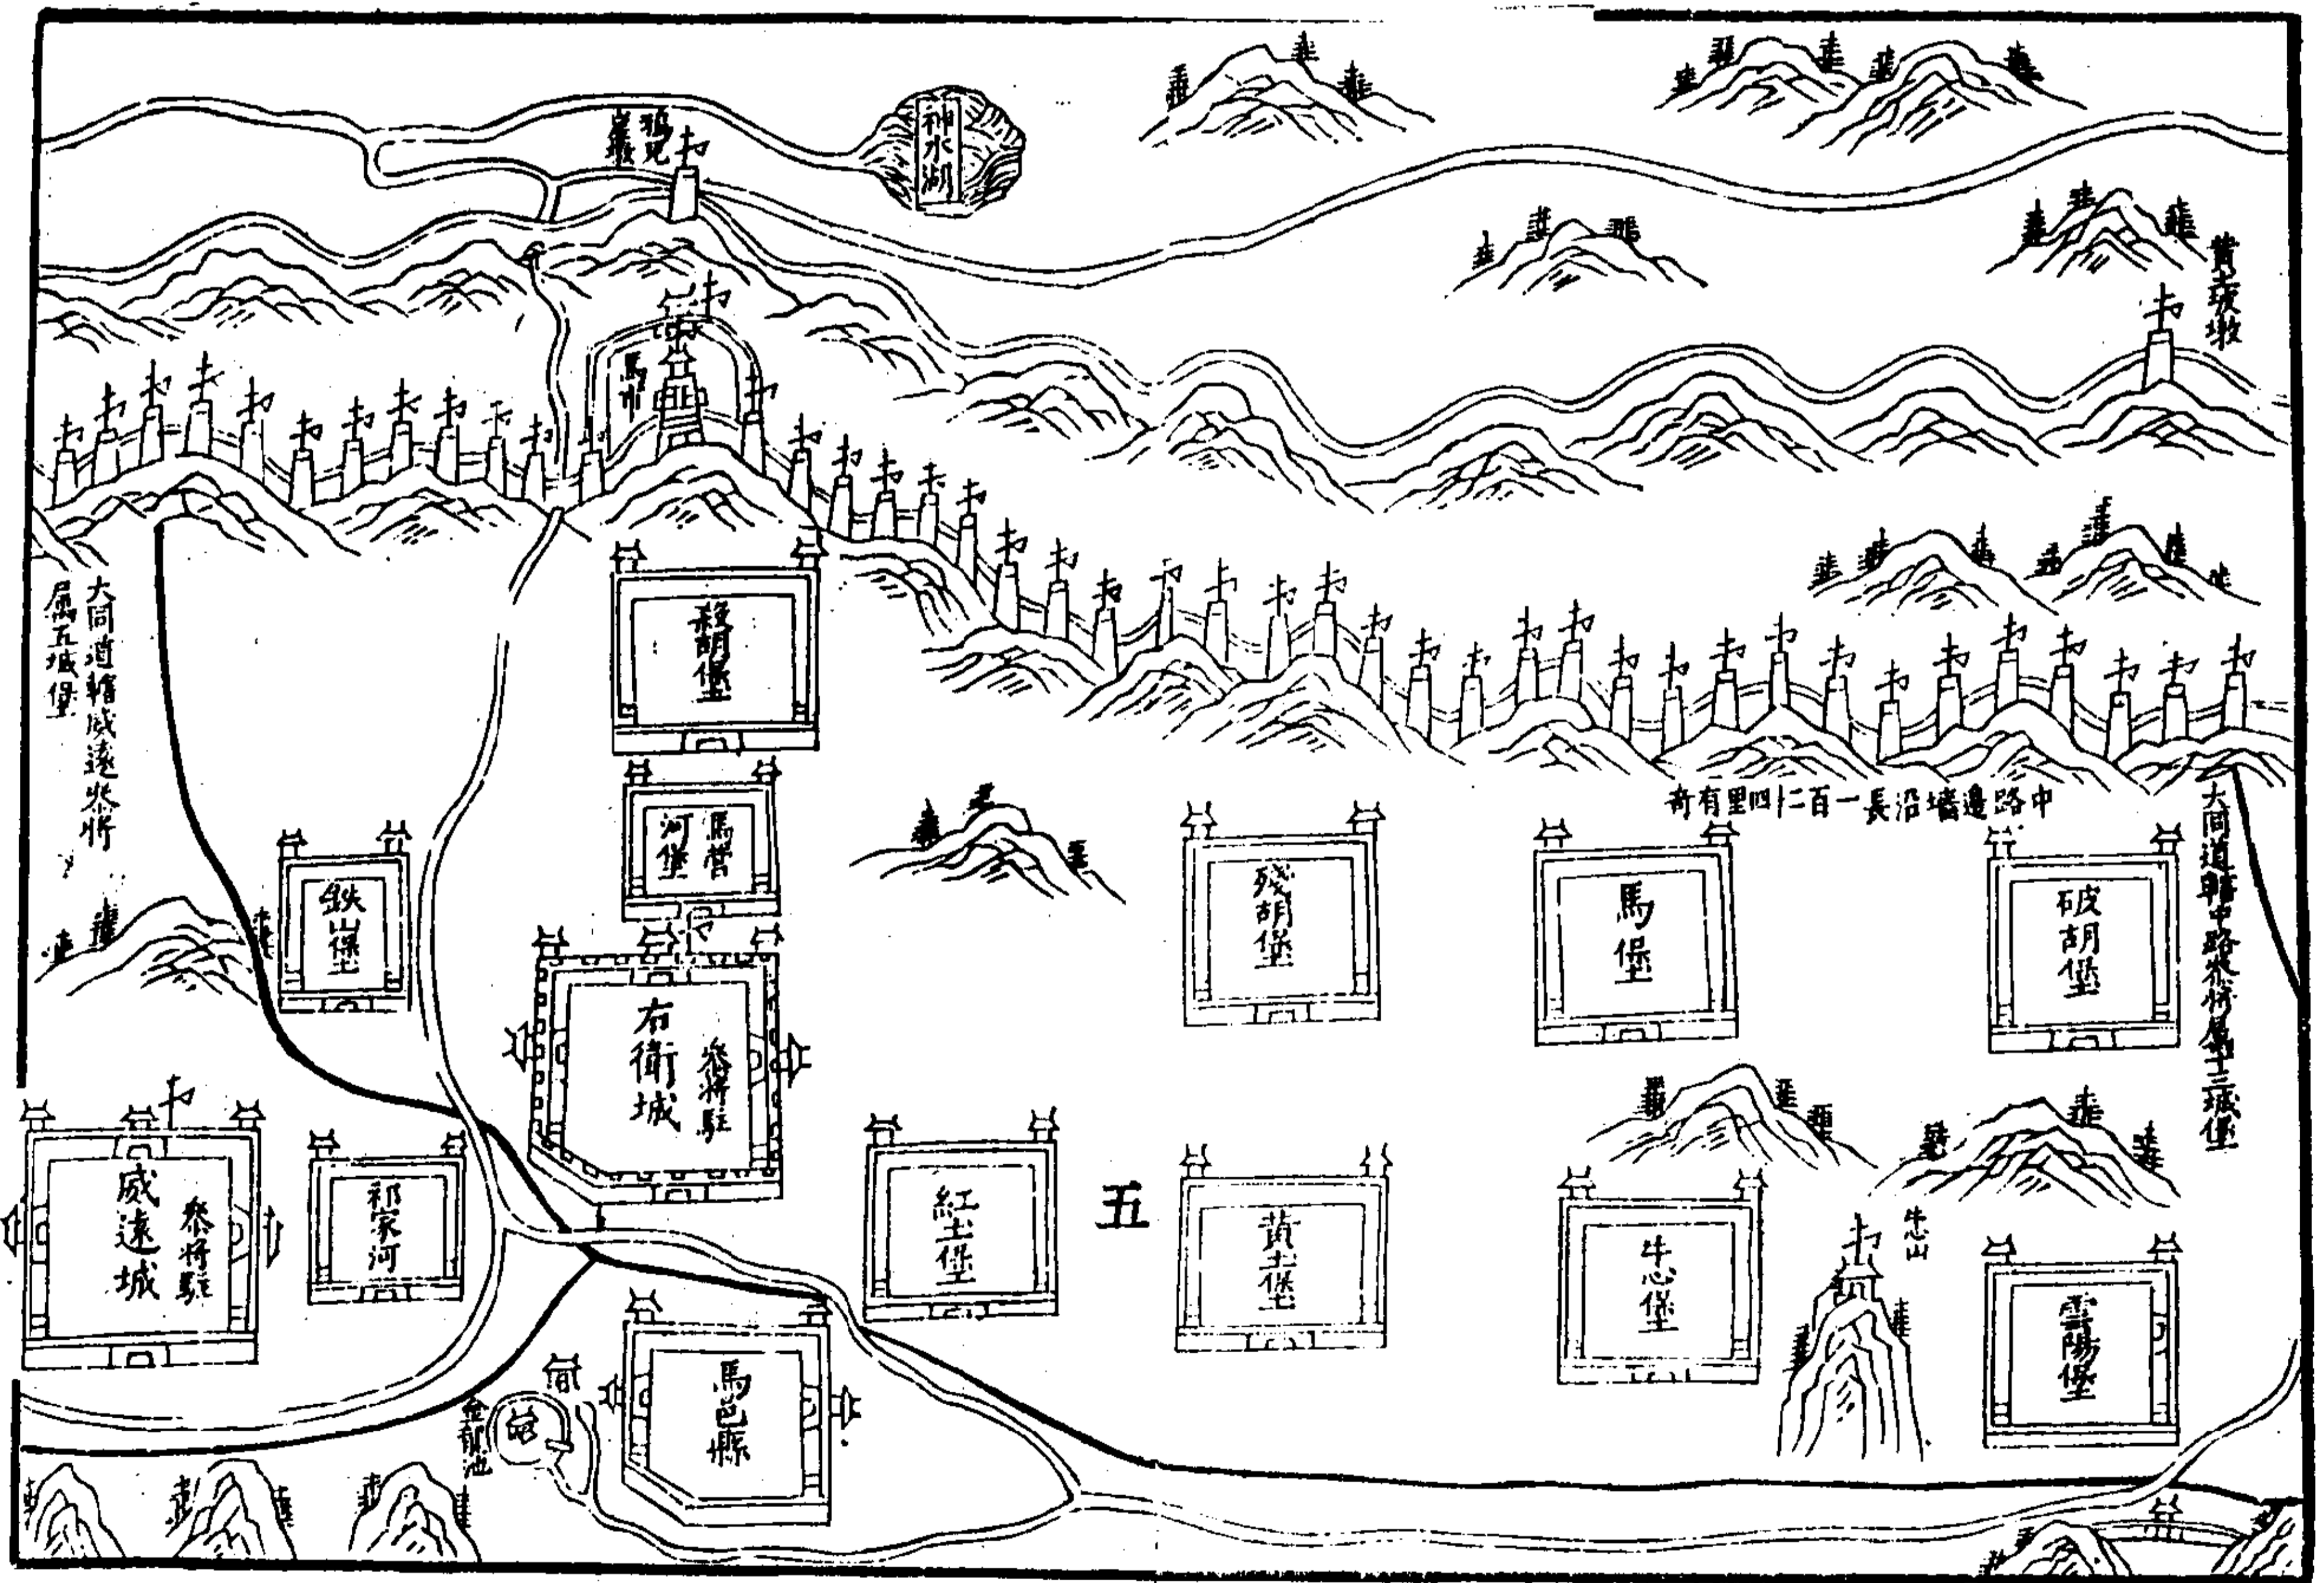 神水湖
黃土坡墩
馬市
大同道轄威遠參將
屬五城堡
殺胡堡
馬營
河堡
鉄山堡
中路邊墻沿長一百二十四里有奇
大同道轄中路參將屬十三城堡
殘胡堡
馬堡
破胡堡
右衛城
參將駐
威遠城
參將駐
祁家河
紅土堡
五
黃土堡
牛心堡
牛心山
雲陽堡
馬邑縣
金龍池